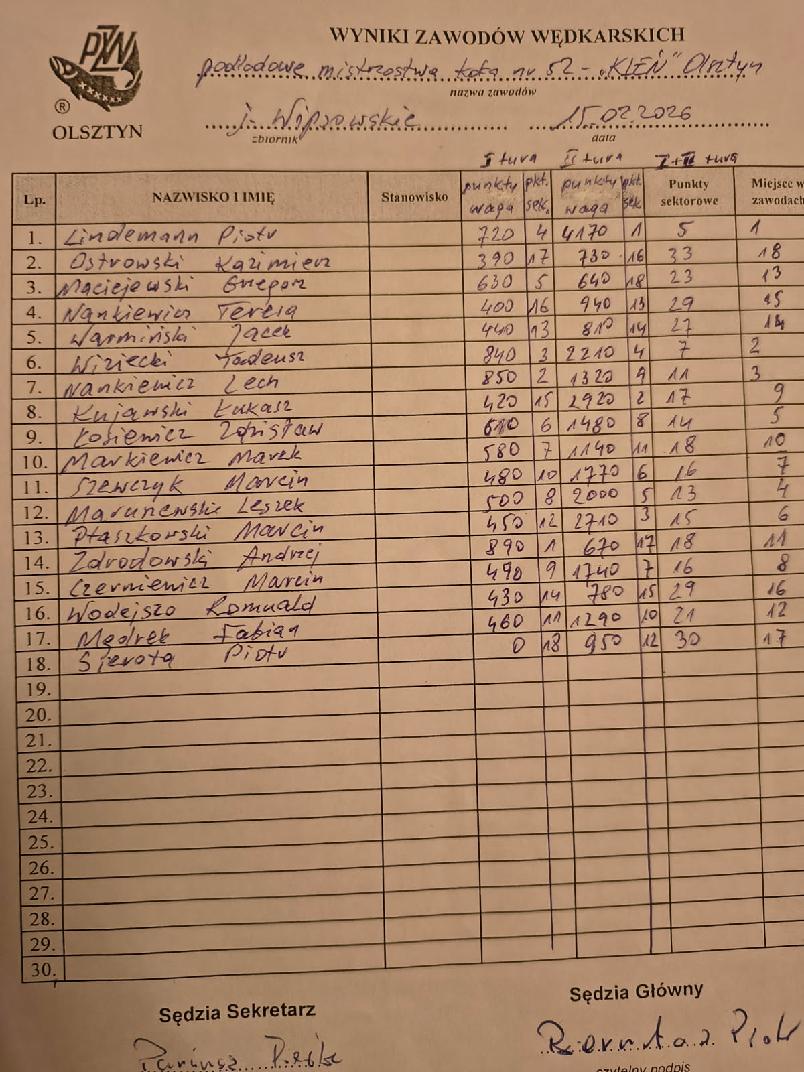 WYNIKI ZAWODÓW WĘDKARSKICH
PZW
®
OLSZTYN
podlodowe mistrzostwa koła nr 52 - „KLEŃ” Olsztyn
nazwa zawodów
j. Wipsowskie 15.02.2026
zbiornik data
I tura II tura I+II tura
Lp. NAZWISKO I IMIĘ Stanowisko punkty waga pkt. sek. punkty waga pkt. sek. Punkty sektorowe Miejsce w zawodach
1. Lindemann Piotr 720 4 4170 1 5 1
2. Ostrowski Kazimierz 390 17 730 16 33 18
3. Maciejewski Grzegorz 630 5 640 18 23 13
4. Nankiewicz Teresa 400 16 940 13 29 15
5. Warmiński Jacek 440 13 810 14 27 14
6. Wiziecki Tadeusz 840 3 2210 4 7 2
7. Nankiewicz Lech 850 2 1320 9 11 3
8. Kujawski Łukasz 420 15 2920 2 17 9
9. Kosiewicz Zdzisław 610 6 1480 8 14 5
10. Markiewicz Marek 580 7 1140 11 18 10
11. Szewczyk Marcin 480 10 1770 6 16 7
12. Leszek 500 8 2000 5 13 4
13. Ptaszkowski Marcin 450 12 2710 3 15 6
14. Zdrodowski Andrzej 890 1 670 17 18 11
15. Czerniewicz Marcin 490 9 1740 7 16 8
16. Wodejszo Romuald 430 14 780 15 29 16
17. Mędrek Fabian 460 11 1290 10 21 12
18. Sierota Piotr 0 18 950 12 30 17
19.
20.
21.
22.
23.
24.
25.
26.
27.
28.
29.
30.
Sędzia Sekretarz Sędzia Główny
Dariusz Piotr
czytelny podpis